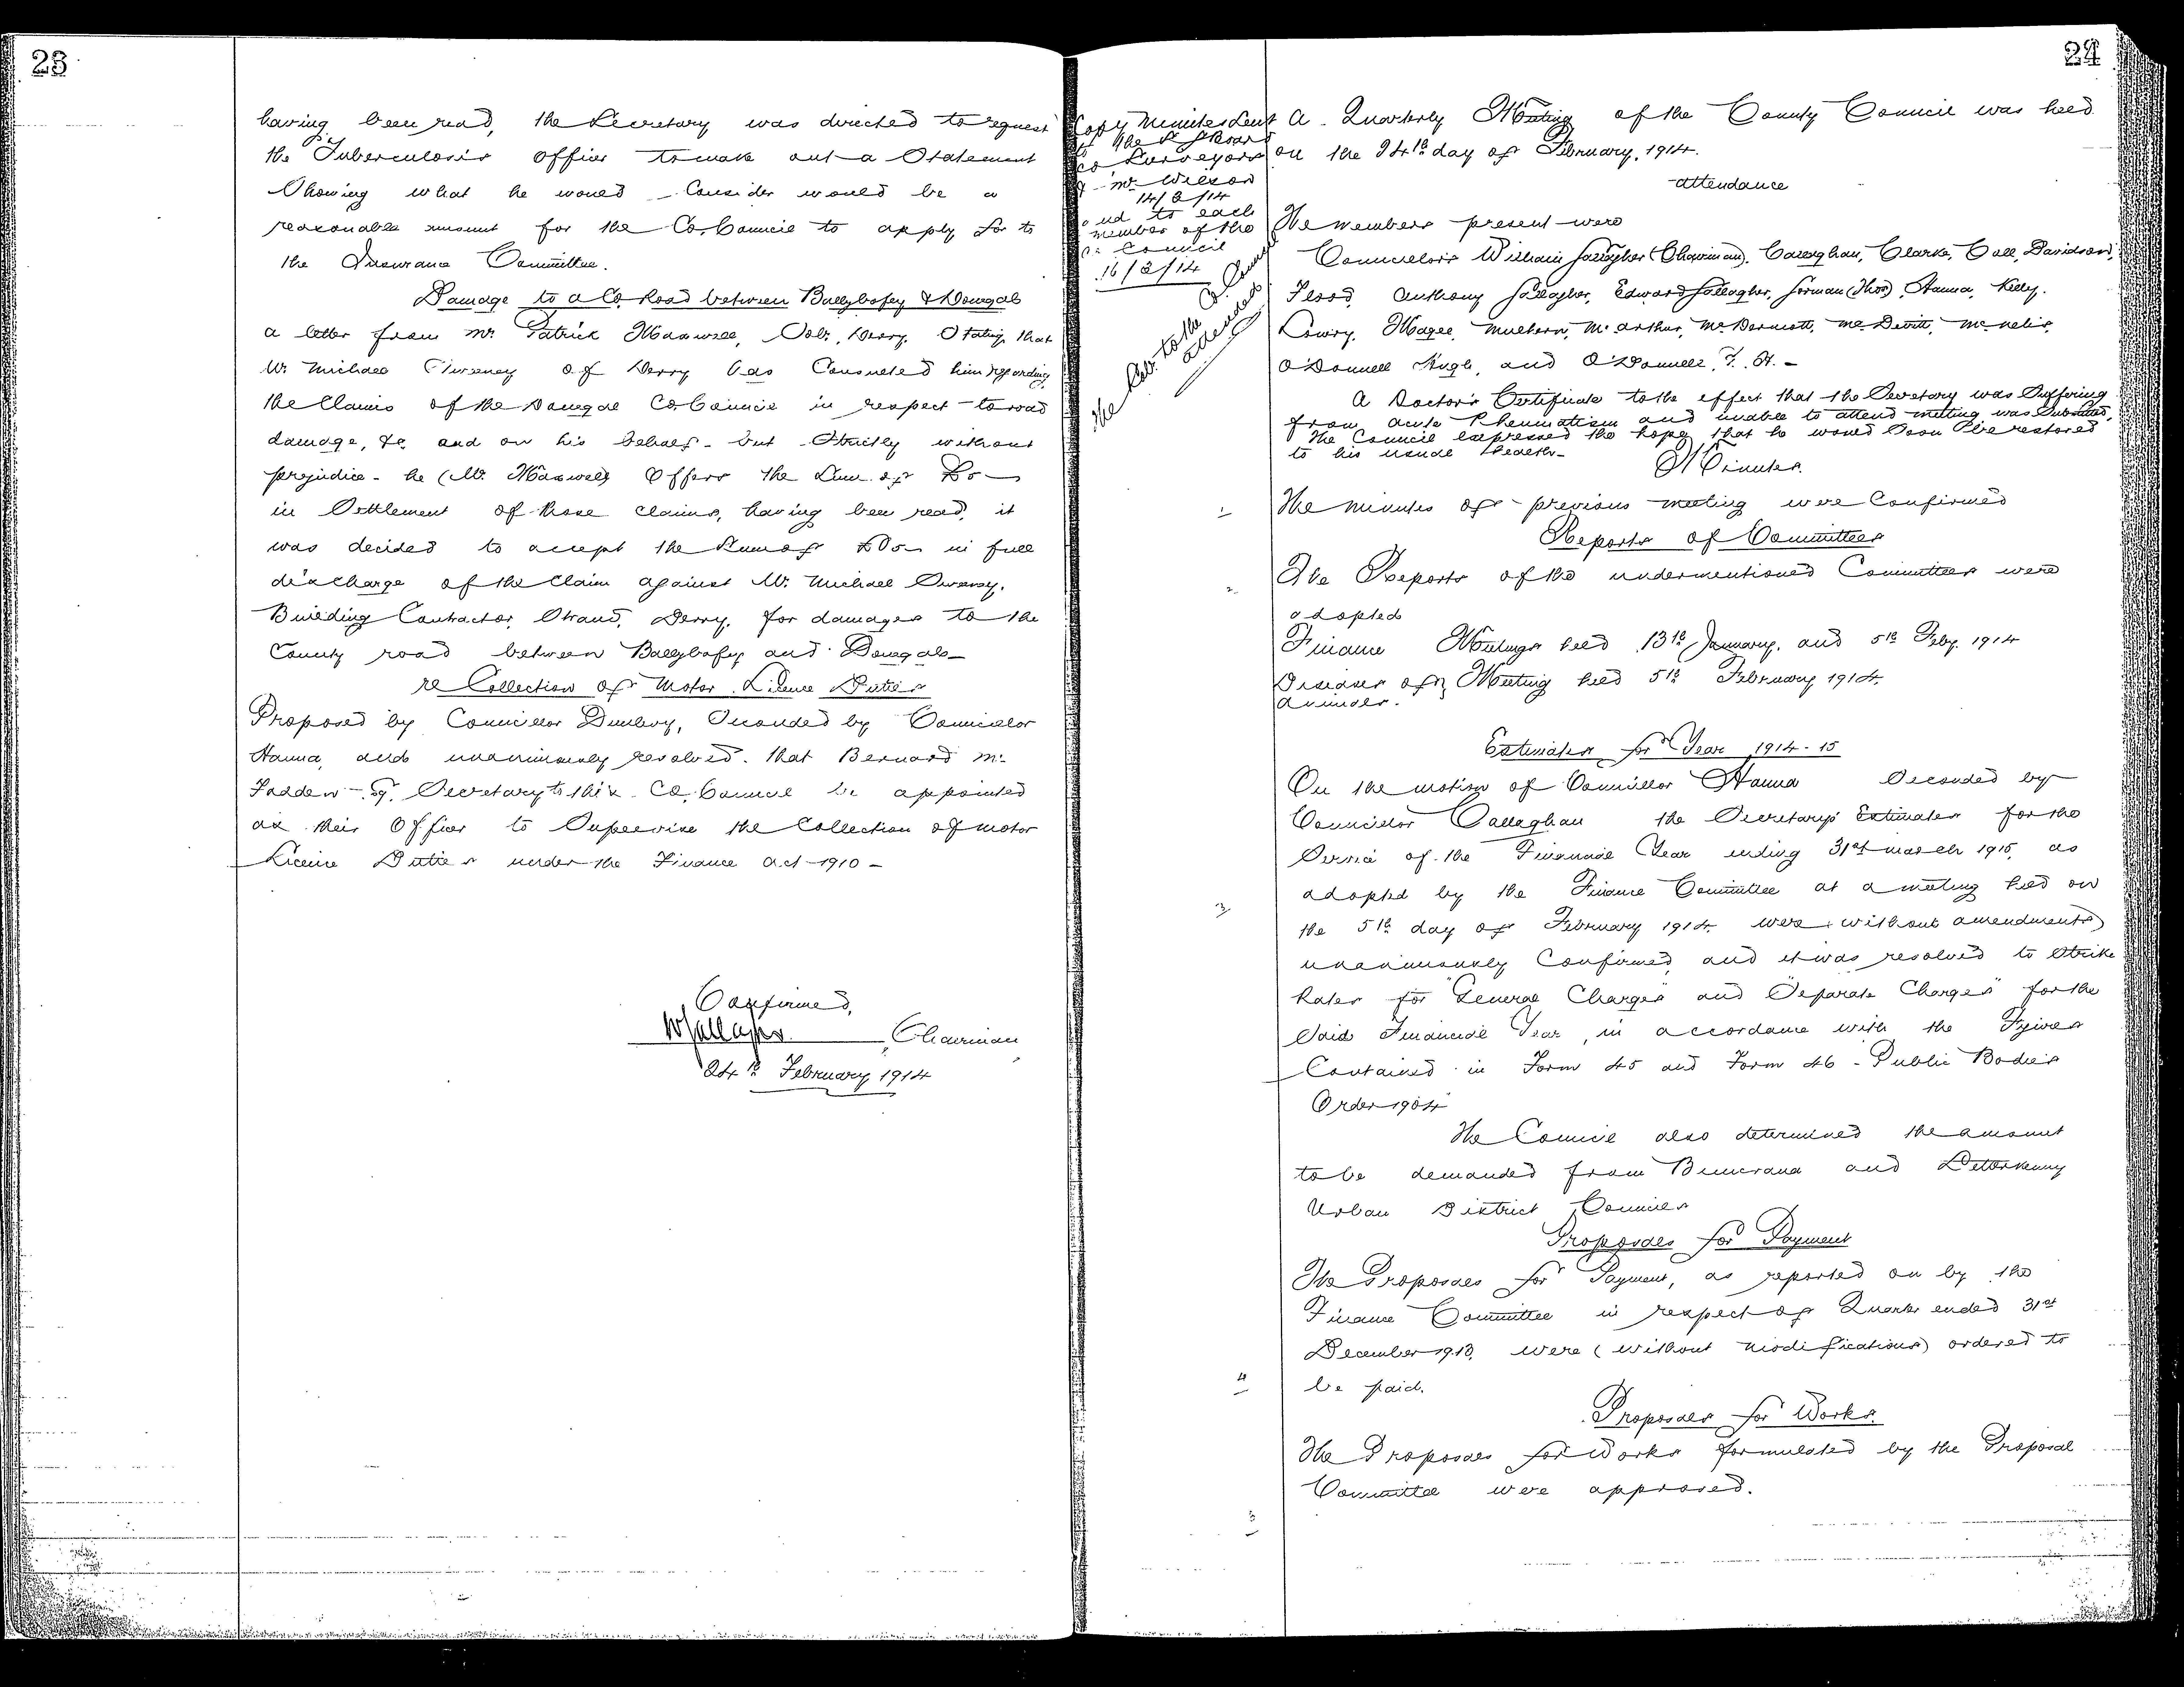 23
having been read, the Secretary was directed to request
the Tuberculosis Officer to make out a Statement
Showing what he would Consider would be a
reasonable amount for the Co. Council to apply for to
the Insurance Committee.
Damage to a Co. Road between Ballybofey & Donegal
a letter from Mr. Patrick Maxwell, Solr., Derry, Stating that
Mr Michael Sweeney of Derry has Consulted him regarding
the Claims of the Donegal Co. Council in respect to road
damage, &c and on his behalf - but Strictly without
prejudice - he (Mr. Maxwell) Offers the Sum of
in Settlement of those claims, having been read, it
was decided to accept the Sum of in full
discharge of the Claim against Mr. Michael Sweeney,
Building Contractor, Strand, Derry, for damages to the
County road between Ballybofey and Donegal -
re Collection of Motor Licence Duties
Proposed by Councillor Dunlevy, Seconded by Councillor
Hanna, and unanimously resolved. that Bernard Mc
Fadden Esq. Secretary to this Co. Council be appointed
as their Officer to Supervise the Collection of motor
Licence Duties under the Finance Act 1910 -
Confirmed,
WGallagher Chairman
24th February 1914
24
Copy Minutes Sent
to the L G Board
Co Surveyors
& Mr Wilson
14/3/14
and to each
member of the
Co. Council
16/3/14
The to the Co. Council
attended
A Quarterly Meeting of the County Council was held
on the 24th day of February, 1914.
attendance
The members present were
Councillors William Gallagher (Chairman), Callaghan, Clarke, Coll, Davidson,
Flood, Anthony Gallagher, Edward Gallagher, Gorman (Thos), Hanna, Kelly,
Lowry, Magee, Mulhern, McArthur, McDermott, McDevitt, McNelis,
O'Donnell Hugh, and O'Donnell, J. H. -
A Doctor's Certificate to the effect that the Secretary was Suffering
from acute Rheumatism and unable to attend meeting was Submitted,
The Council expressed the hope that he would Soon be restored
to his usual health -
Minutes.
1
The minutes of previous meeting were Confirmed
Reports of Committees
2
The Reports of the undermentioned Committees were
adopted
Finance Meetings held 13th January, and 5th Feby. 1914
Diseases of Meeting held 5th February 1914.
Animals.
Estimates for Year 1914-15
On the motion of Councillor Hanna Seconded by
Councillor Callaghan the Secretary's Estimates for the
Service of the Financial Year ending 31st March 1915, as
adopted by the Finance Committee at a meeting held on
3
the 5th day of February 1914 were (without amendments)
unanimously Confirmed, and it was resolved to Strike
Rates for "General Charges" and "Separate Charges" for the
Said Financial Year, in accordance with the Figures
Contained in Form 45 and Form 46 - Public Bodies
Order 1904
The Council also determined the amount
to be demanded from Buncrana and Letterkenny
Urban District Councils
Proposals for Payment
The Proposals for Payment, as reported on by the
Finance Committee in respect of Quarter ended 31st
December 1913, were (without modifications) ordered to
4
be paid.
Proposals for Works.
The Proposals for Works formulated by the Proposal
Committee were approved.
5